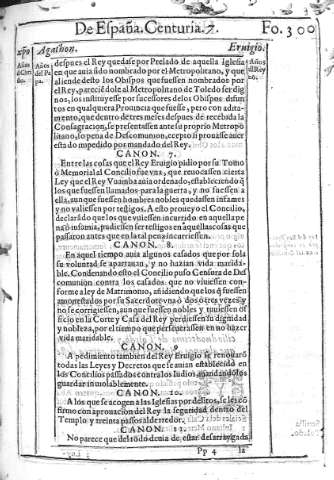 De España. Centuria. 7.    Fo. 300
xpo    Agathon.    Eruigio.
Años de Chro.    Años del Papa.    Años del Rey
despues el Rey quedase por Prelado de aquella Iglesia
en que auia sido nombrado por el Metropolitano, y que
aliende desto los Obispos que fuessen nombrados por
el Rey, pareciédole al Metropolitano de Toledo ser dig
nos, los instituyesse por sucessores de los Obispos difun
tos en qualquera Prouincia que fuesse, pero con adita-
mento, que dentro de tres meses despues de recebida la
Consagracion, se presentassen ante su proprio Metropo
litano, so pena de Descomunion, excepto si prouasse auer
esta do impedido por mandado del Rey.
CANON. 7.
Entre las cosas que el Rey Eruigio pidio por su Tomo
ò Memorial al Concilio fue vna, que reuocassen cierta
Ley que el Rey Vuamba auia ordenado, estableciendo q̃
los que fuessen llamados para la guerra, y no fuessen a
ella, aun que fuessen hombres nobles quedassen infames
y no valiessen por testigos. A esto proueyo el Concilio,
declarádo que los que vuiessen incurrido en aquella pe
na d̃ infamia, pudiessen ser testigos en aquellas cosas que
passaron antes que en la tal pena incurriessen.
CANON. 8.
En aquel tiempo auia algunos casados que por sola
su voluntad se apartauan, y no hazian vida maridá-
ble. Condenando esto el Concilio puso Censura de Des
comunion contra los casados que no viuiessen con-
forme a ley de Matrimonio, añidiendo que los q̃ fuessen
amonestados por su Sacerdote vna ò dos o tres vezes y
no se corrigiessen, aun que fuessen nobles y tuuiessen of
ficio en la Corte y Casa del Rey perdiessen su dignidad
y nobleza, por el tiempo que perseuerassen en no hazer
vida maridable.
CANON. 9.
A pedimiento tambien del Rey Eruigio se renouarõ
todas las Leyes y Decretos que se auian establecido en
los Concilios passados contra los Iudios mandandolos
guardar inuiolablemente.
CANON. 10.
A los que se acogen a las Iglesias por delitos, se les cõ
firmo con aprouacion del Rey la seguridad dentro del
Templo y treinta passos alderredor.
CANON. 11.
No parece que del todo denia de estar desarraygada
Pp 4    la